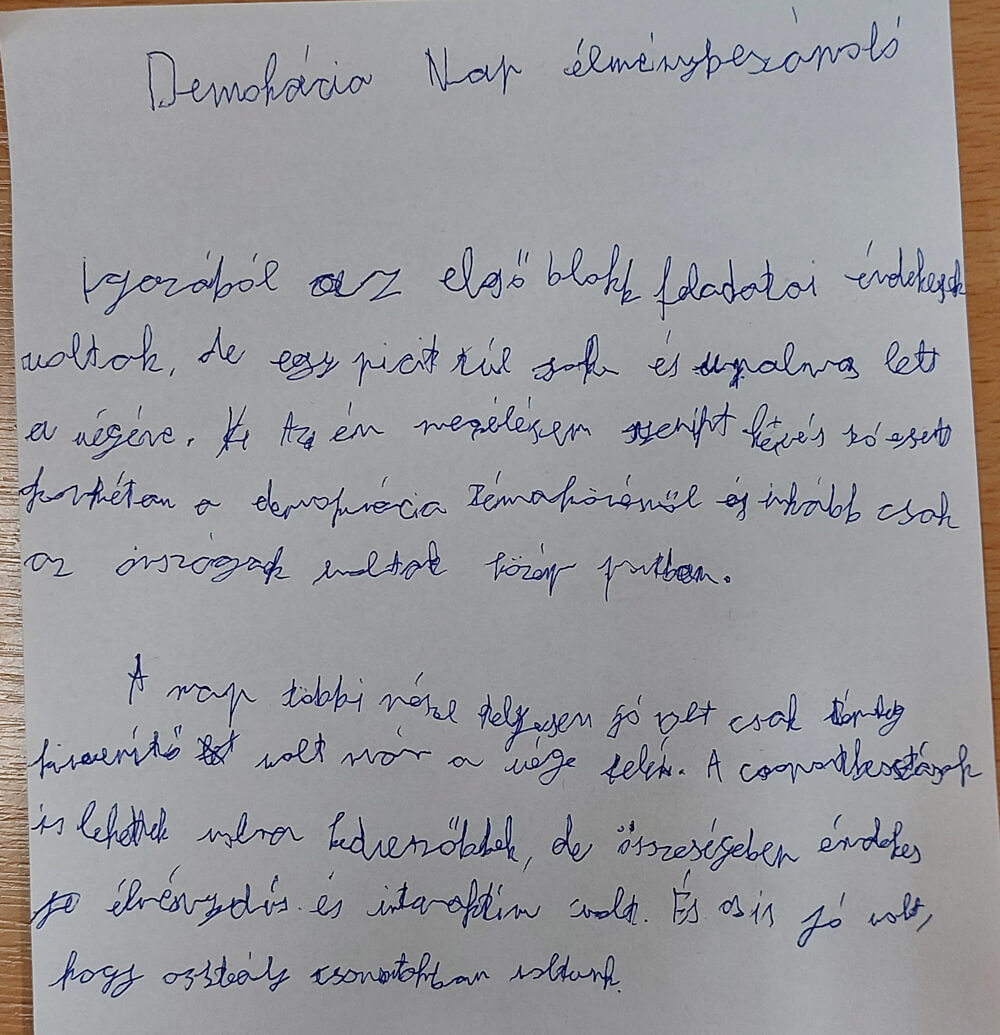 Demokrácia Nap élménybeszámoló
Igazából az első blokk feladatai érdekesek
voltak, de egy picit túl sok és unalmas lett
a végére. Az én megélésem szerint kevés szó esett
konkrétan a demokrácia témaköréről és inkább csak
az országok voltak közép pontban.
A nap többi része teljesen jó volt csak
kimerítő volt már a vége felé. A csoportbeosztások
is lehettek volna kedvezőbbek, de összeségében érdekes
élménydús és interaktív volt. És az is jó volt,
hogy osztály csoportokban voltunk.